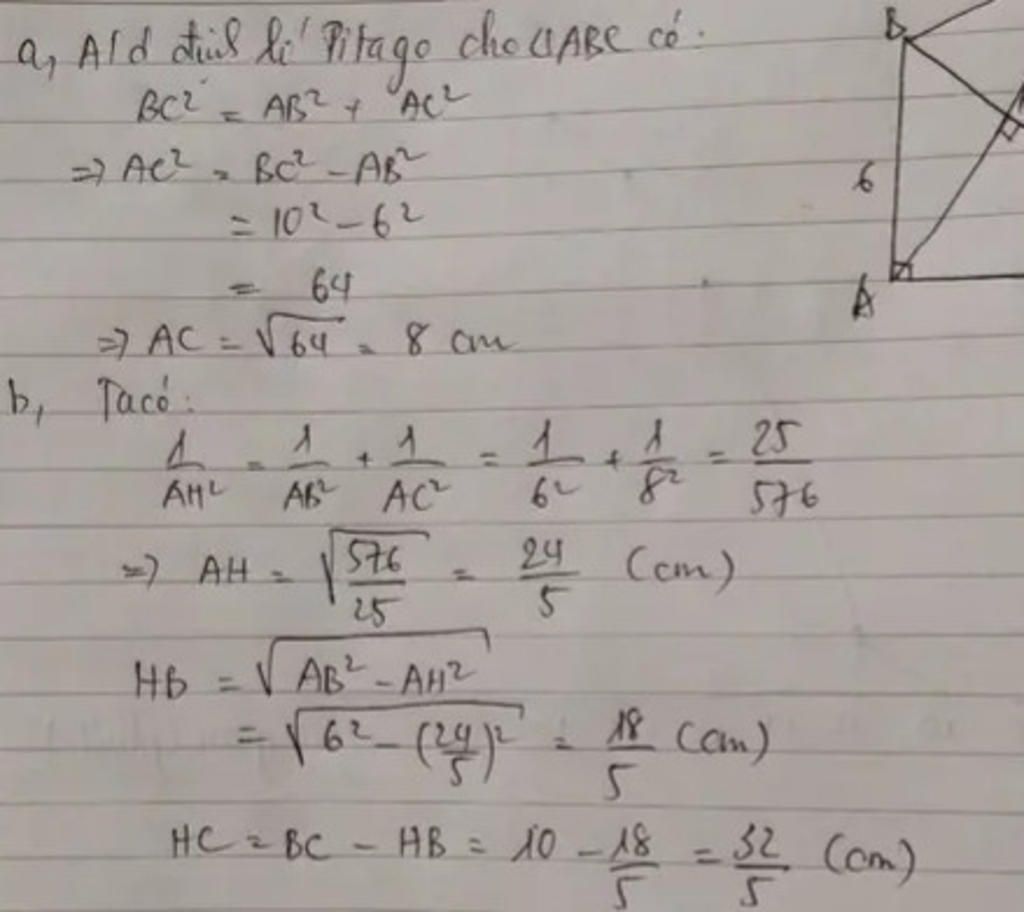 a, A/d định lí Pitago cho ΔABC có:
BC² = AB² + AC²
=> AC² = BC² - AB²
= 10² - 6²
= 64
=> AC = √64 = 8 cm
b, Ta có:
1/AH² = 1/AB² + 1/AC² = 1/6² + 1/8² = 25/576
=> AH = √(576/25) = 24/5 (cm)
HB = √(AB² - AH²)
= √(6² - (24/5)²) = 18/5 (cm)
HC = BC - HB = 10 - 18/5 = 32/5 (cm)
B
6
A